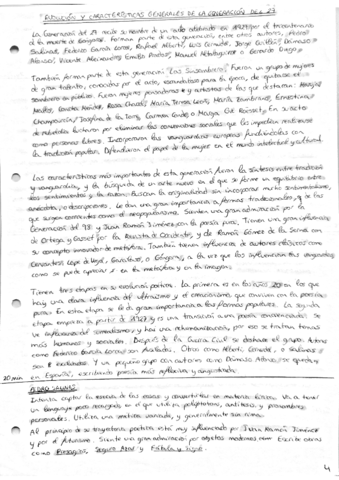 EVOLUCIÓN Y CARACTERÍSTICAS GENERALES DE LA GENERACIÓN DEL 27
La Generación del 27 recibe su nombre de un acto celebrado en 1927 por el tricentenario
de la muerte de Góngora. Forman parte de esta generación entre otros autores, Pedro
Salinas, Federico García Lorca, Rafael Alberti, Luis Cernuda, Jorge Guillén, Dámaso
Alonso, Vicente Aleixandre, Emilio Prados, Manuel Altolaguirre o Gerardo Diego.
También forman parte de esta generación "Las Sinsombrero". Fueron un grupo de mujeres
de gran talento, conocidas por el acto, escandaloso para la época, de quitarse el
sombrero en público. Fueron mujeres pensadoras y artistas de las que destacan
Mallo, Concha Méndez, Rosa Chacel, María Teresa León, María Zambrano, Ernestina
Champourcin, Josefina de la Torre, Carmen Conde o Marga Gil Roësset. En su acto
de rebeldía lucharon por eliminar las convenciones sociales que les impedían realizarse
como personas libres. Incorporaron las vanguardias europeas fundiéndolas con
la tradición popular. Defendieron el papel de la mujer en el mundo intelectual y cultural.
Las características más importantes de esta generación fueron la síntesis entre tradición
y vanguardia, y la búsqueda de un arte nuevo en el que se forme un equilibrio entre
los sentimientos y la razón. Buscan la originalidad sin incorporar mucho sentimentalismo,
anécdotas o descripciones. Le dan una gran importancia a formas tradicionales, y de las
que surgen corrientes como el neopopularismo. Sienten una gran admiración por la
Generación del 98 y Juan Ramón Jiménez, con la poesía pura. Tienen una gran influencia
de Ortega y Gasset por la Revista de Occidente, y de Ramón Gómez de la Serna con
su concepto innovador de metáfora. También tienen influencias de autores clásicos como
Cervantes, Lope de Vega, Garcilaso, o Góngora, a la vez que las influencias vanguardistas
como se puede apreciar en la metáfora y en la imagen.
Tienen tres etapas en su evolución poética. La primera es en los años 20 en los que
hay una clara influencia del ultraísmo y el creacionismo, que conviven con la poesía
pura. En esta etapa se le da gran importancia a las formas populares. La segunda
etapa empieza a partir de 1927 y es una transición a una poesía
influencias del surrealismo y hay una rehumanización, por eso se tratan temas
más humanos y sociales. Después de la Guerra Civil se deshace el grupo. Autores
como Federico García Lorca son asesinados. Otros como Alberti, Cernuda, o Salinas se
van exiliados. Y un pequeño grupo con autores como Dámaso Alonso se queda
20 min en España, escribiendo poesía más reflexiva y angustiada.
PEDRO SALINAS
Intenta captar la esencia de las cosas y convertirlas en materia poética. Va a tener
un lenguaje poco recargado en el que utiliza paralelismos, antítesis, y pronombres
personales. Utiliza una métrica variada, y generalmente sin rima.
Al principio de su trayectoria poética está muy influenciado por Juan Ramón Jiménez
y por el futurismo. Siente una gran admiración por objetos modernos. Escribe obras
como Presagios, Seguro Azar y Fábula y signo.
4